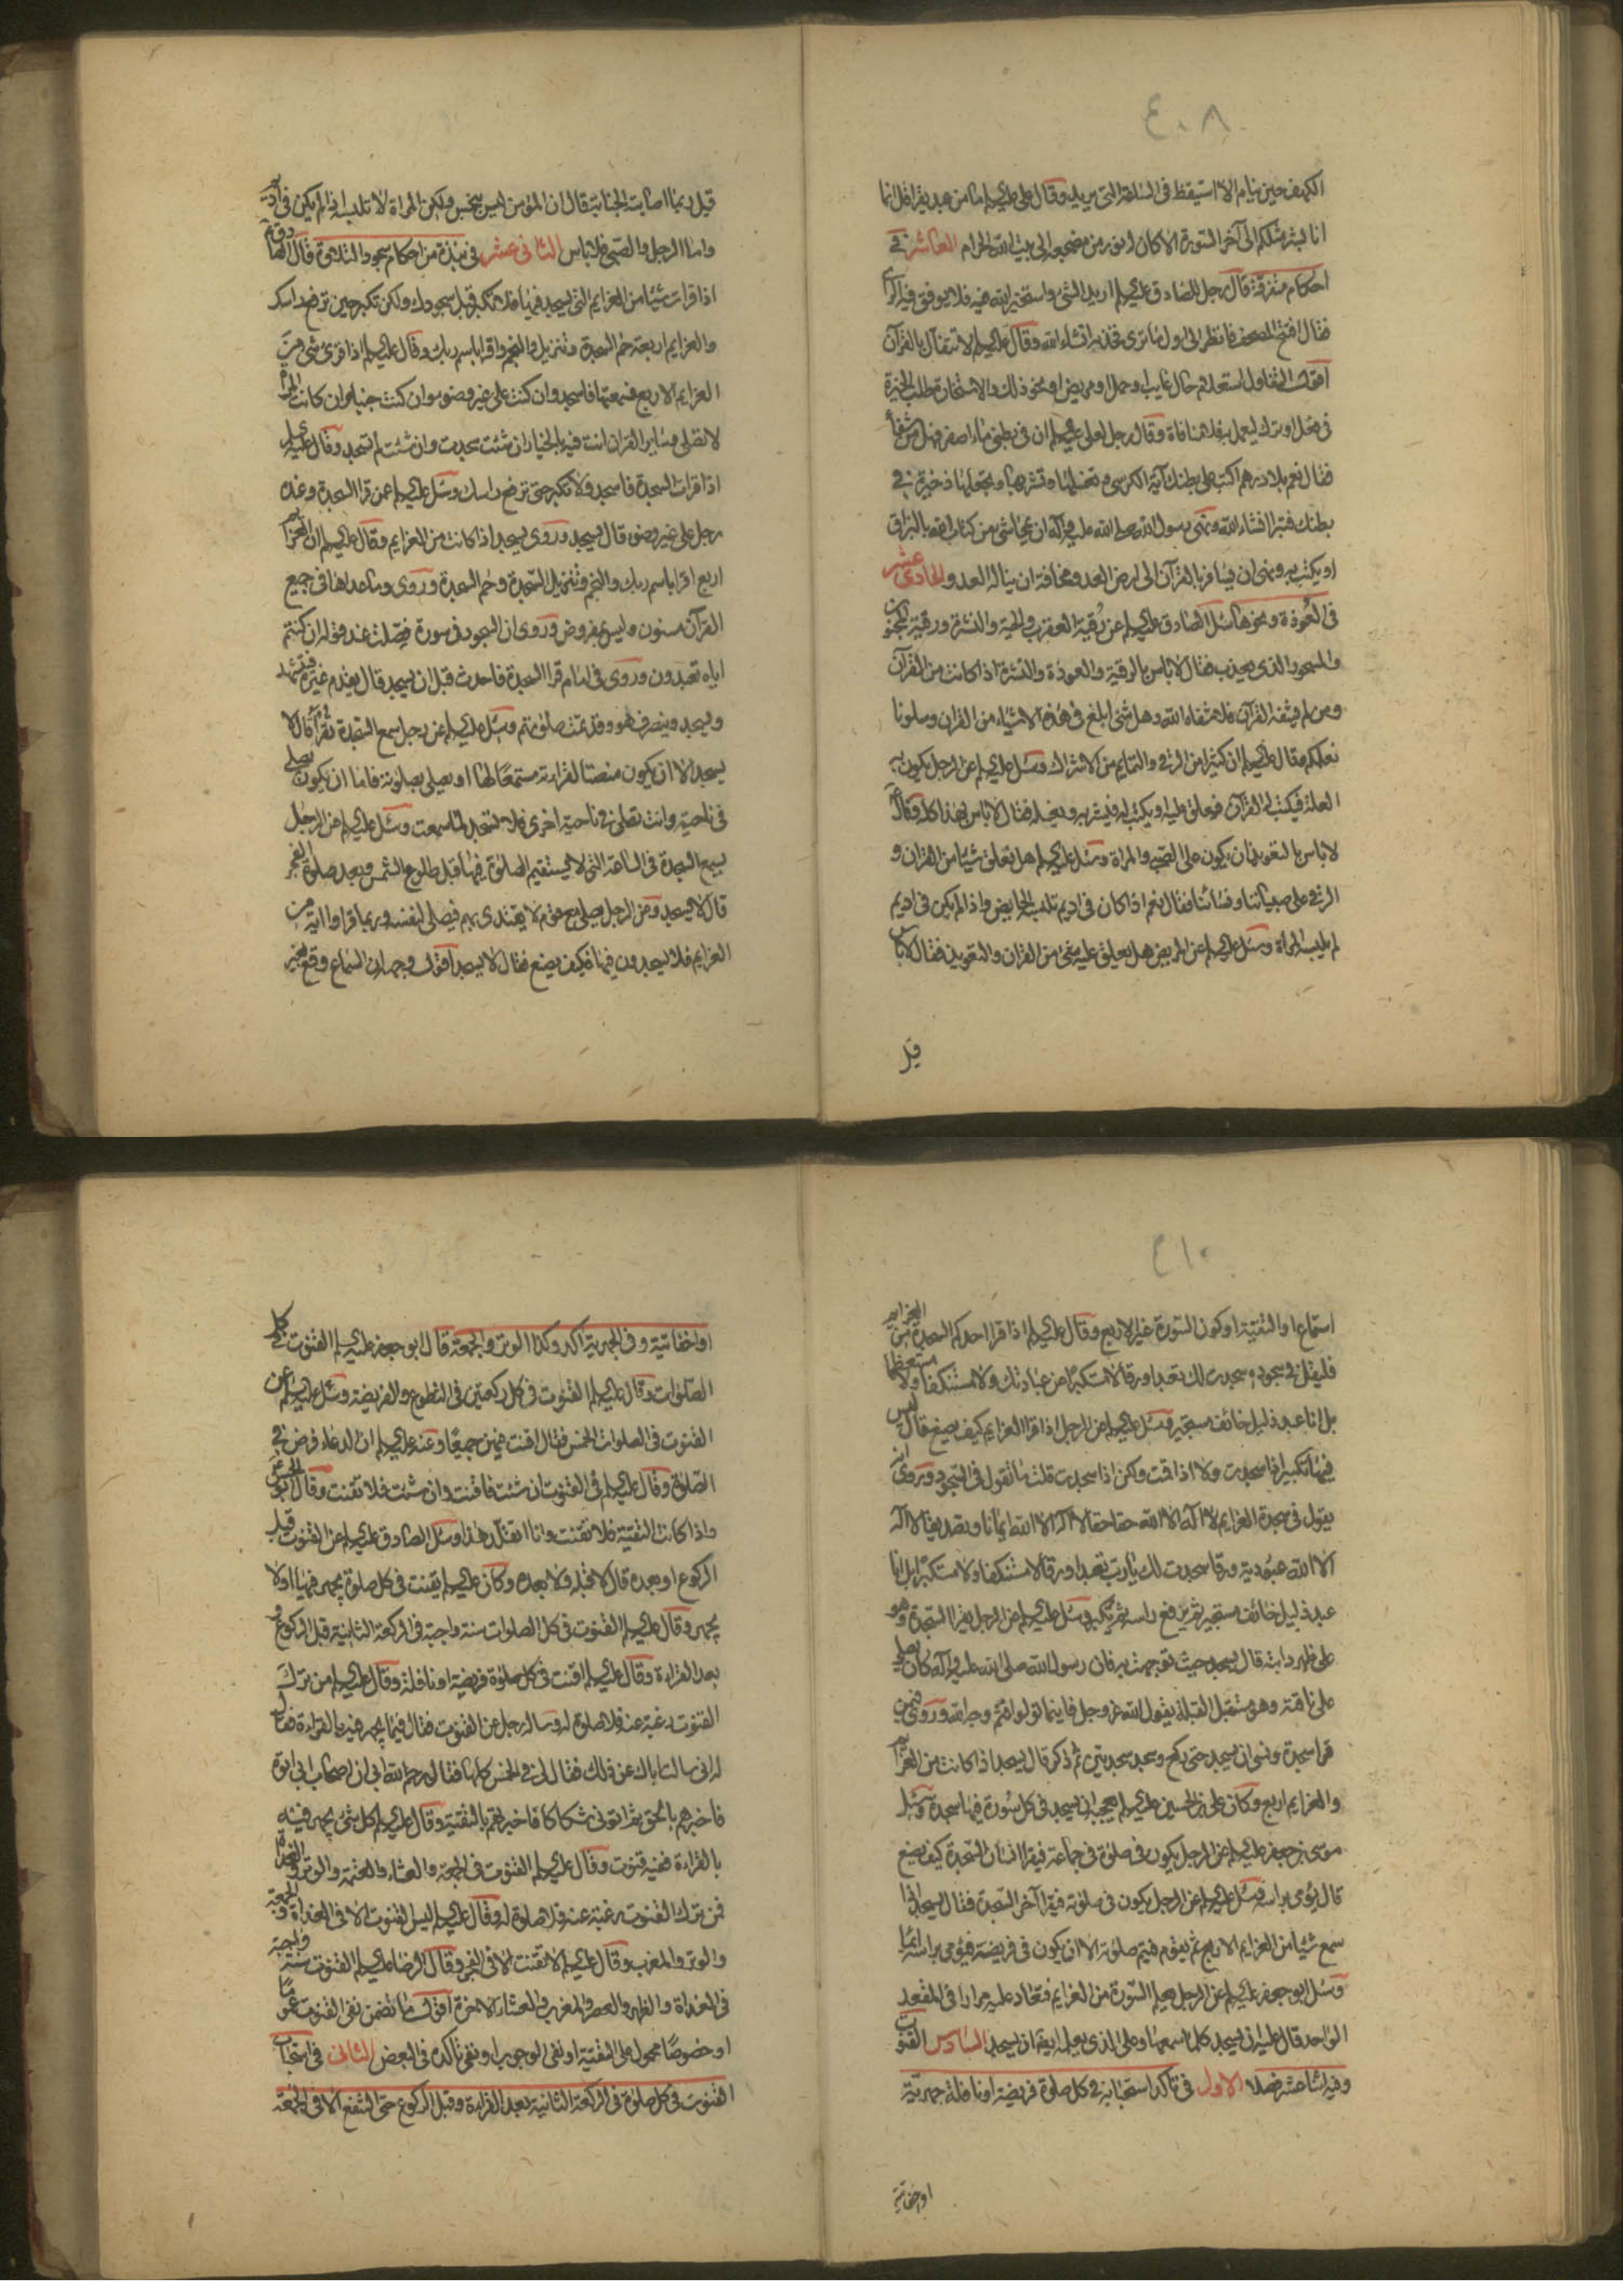 ٤٠٨
الكهف حين ينام الا استيقظ فى الساعة التى يريد وقال على عليه السلم ما من عبد يقرا قل انما
انا بشر مثلكم الى آخر السورة الا كان له نور من مضجعه الى بيت الله الحرام العاشر فى
احكام متفرقة قال رجل للصادق عليه السلم اريد الشئ واستخير الله فيه فلا يوفق فيه الراى
فقال افتح المصحف فانظر الى اول ما ترى فخذ به انشاء الله وقال عليه السلم لا تتفأل بالقرآن
اقول التفاول استعلام حال غايب او حمل او مريض او نحو ذلك والاستخارة طلب الخيرة
فى فعل او ترك ليعمل به فلا منافاة وقال رجل لعلى عليه السلم ان فى بطنى ماء اصفر فهل من شفاء
فقال نعم بلا درهم اكتب على بطنك آية الكرسى وتغسلها وتشربها وتجعلها ذخيرة فى
بطنك فتبرا انشاء الله ونهى رسول الله صلى الله عليه وآله ان يمحا شئ من كتاب الله بالبزاق
او يكتب به ونهى ان يسافر بالقرآن الى ارض العدو مخافة ان يناله العدو الحادى عشر
فى العوذة ونحوها سئل الصادق عليه السلم عن رقية العقرب والحية والنشرة ورقية المجنون
والمسحور الذى يعذب فقال لا باس بالرقية والعوذة والنشرة اذا كانت من القرآن
ومن لم يشفه القرآن فلا شفاه الله وهل شئ ابلغ فى هذه الاشياء من القران وسلونا
نعلمكم وقال عليه السلم ان كثيرا من الرقى والتمايم من الاشراك وسئل عليه السلم عن الرجل يكون به
العلة فيكتب له القرآن فيعلق عليه او يكتب له فيشربه ويغسله فقال لا باس بهذا كله وقال
لا باس بالتعويذ ان يكون على الصبى والمراة وسئل عليه السلم هل نعلق شيئا من القران و
الرقى على صبياننا ونسائنا فقال نعم اذا كان فى اديم تلبسه الحايض واذا لم يكن فى اديم
لم تلبسه المراة وسئل عليه السلم عن المريض هل يعلق عليه شئ من القران والتعويذ فقال لا باس
قيل
قيل ربما اصابته الجنابة قال ان المؤمن ليس بنجس ولكن المراة لا تلبسه اذا لم يكن فى اديم
واما الرجل والصبى فلا باس الثانى عشر فى نبذة من احكام سجود التلاوة قال الصادق
اذا قرات شيئا من العزايم التى يسجد فيها فلا تكبر قبل سجودك ولكن تكبر حين ترفع راسك
والعزايم اربعة حم السجدة وتنزيل والنجم واقرا باسم ربك وقال عليه السلم اذا قرئ شئ من
العزايم الاربع فسمعتها فاسجد وان كنت على غير وضوء وان كنت جنبا وان كانت المراة
لا تصلى وساير القران انت فيه بالخيار ان شئت سجدت وان شئت لم تسجد وقال عليه السلم
اذا قرات السجدة فاسجد ولا تكبر حتى ترفع راسك وسئل عليه السلم عمن قرا السجدة وعنده
رجل على غير وضوء قال يسجد وروى يسجد اذا كانت من العزايم وقال عليه السلم ان العزايم
اربع اقرا باسم ربك والنجم وتنزيل السجدة وحم السجدة وروى وما عداها فى جميع
القرآن مسنون وليس بمفروض وروى ان السجود فى سورة فصلت عند قوله ان كنتم
اياه تعبدون وروى فى امام قرا السجدة فاحدث قبل ان يسجد قال يقدم غيره فيتشهد
ويسجد وينصرف هو وقد تمت صلوتهم وسئل عليه السلم عن رجل سمع السجدة تقرأ قال لا
يسجد الا ان يكون منصتا لقراءته مستمعا لها او يصلى بصلوته فاما ان يكون يصلى
فى ناحية وانت تصلى فى ناحية اخرى فلا تسجد لما سمعت وسئل عليه السلم عن الرجل
يسمع السجدة فى الساعة التى لا يستقيم الصلوة فيها قبل طلوع الشمس وبعد صلوة الفجر
قال لا يسجد وعن الرجل يصلى مع قوم لا يقتدى بهم فيصلى لنفسه وربما قراوا اية من
العزايم فلا يسجدون فيها فكيف يصنع فقال لا يسجد اقول وجهه ان السماع وقع بغير
٤١٠
استماع او التقية او كون السورة غير الاربع وقال عليه السلم اذا قرا احدكم السجدة من العزايم
فليقل فى سجوده سجدت لك تعبدا ورقا لا مستكبرا عن عبادتك ولا مستنكفا ولا متعظما
بل انا عبد ذليل خائف مستجير وسئل عليه السلم عن الرجل اذا قرا العزايم كيف يصنع قال ليس
فيها تكبير اذا سجدت ولا اذا قمت ولكن اذا سجدت قلت ما تقول فى السجود وروى انه
يقول فى سجدة العزايم لا آله الا الله حقا حقا لا آله الا الله ايمانا وتصديقا لا اله
الا الله عبودية ورقا سجدت لك يا رب تعبدا ورقا لا مستنكفا ولا مستكبرا بل انا
عبد ذليل خائف مستجير ثم يرفع راسه ثم يكبر وسئل عليه السلم عن الرجل يقرا السجدة وهو
على ظهر دابته قال يسجد حيث توجهت به فان رسول الله صلى الله عليه وآله كان يصلى
على ناقته وهو مستقبل القبلة يقول الله عز وجل فاينما تولوا فثم وجه الله وروى فيمن
قرا سجدة ونسى ان يسجد حتى ركع وسجد سجدتين ثم ذكر قال يسجد اذا كانت من العزايم
والعزايم اربع وكان على بن الحسين عليه السلم يعجبه ان يسجد فى كل سورة فيها سجدة وسئل
موسى بن جعفر عليه السلم عن الرجل يكون فى صلوة فى جماعة فيقرا انسان السجدة كيف يصنع
قال يومى براسه وسئل عليه السلم عن الرجل يكون فى صلوته فيقرا آخر السجدة فقال يسجد اذا
سمع شيئا من العزايم الاربع ثم يقوم فيتم صلوته الا ان يكون فى فريضة فيؤمى براسه ايماء
وسئل ابو جعفر عليه السلم عن الرجل يعلم السورة من العزايم فتعاد عليه مرارا فى المقعد
الواحد قال عليه ان يسجد كلما سمعها وعلى الذى يعلمه ايضا ان يسجد السادس القنوت
وفيه اثنا عشر فصلا الاول فى تاكد استحبابه فى كل صلوة فريضة او نافلة جهرية
او اخفاتية
او اخفاتية وفى الجهرية آكد وكذا الوتر والجمعة قال ابو جعفر عليه السلم القنوت فى كل
الصلوات وقال عليه السلم القنوت فى كل ركعتين فى التطوع والفريضة وسئل عليه السلم عن
القنوت فى الصلوات الخمس فقال اقنت فيهن جميعا وعنه عليه السلم ان الدعاء فرض فى
الصلوة وقال عليه السلم فى القنوت ان شئت فاقنت وان شئت فلا تقنت وقال ابو الحسن
واذا كانت التقية فلا تقنت وانا اتقلد هذا وسئل الصادق عليه السلم عن القنوت قبل
الركوع او بعده قال لا قبله ولا بعده وكان عليه السلم يقنت فى كل صلوة يجهر فيها او لا
يجهر وقال عليه السلم القنوت فى كل الصلوات سنة واجبة فى الركعة الثانية قبل الركوع و
بعد القراءة وقال عليه السلم اقنت فى كل صلوة فريضة او نافلة وقال عليه السلم من ترك
القنوت رغبة عنه فلا صلوة له وساله رجل عن القنوت فقال فيما يجهر فيه بالقراءة فقال
له انى سالت اباك عن ذلك فقال لى فى الخمس كلها فقال رحم الله ابى ان اصحاب ابى اتوه
فاخبرهم بالحق ثم اتونى شكاكا فاخبرتهم بالتقية وقال عليه السلم كل شئ يجهر فيه
بالقراءة ففيه قنوت وقال عليه السلم القنوت فى الجمعة والعشاء والعتمة والوتر والغداة
فمن ترك القنوت رغبة عنه فلا صلوة له وقال عليه السلم ليس القنوت الا فى الغداة والجمعة
والوتر والمغرب وقال عليه السلم لا تقنت الا فى الفجر وقال الرضا عليه السلم القنوت سنة واجبة
فى الغداة والظهر والعصر والمغرب والعشاء الاخرة اقول ما تضمن نفى القنوت عموما
او خصوصا محمول على التقية او نفى الوجوب او نفى تاكده فى البعض الثانى فى استحباب
القنوت فى كل صلوة فى الركعة الثانية بعد القراءة وقبل الركوع حتى الشفع الا فى الجمعة